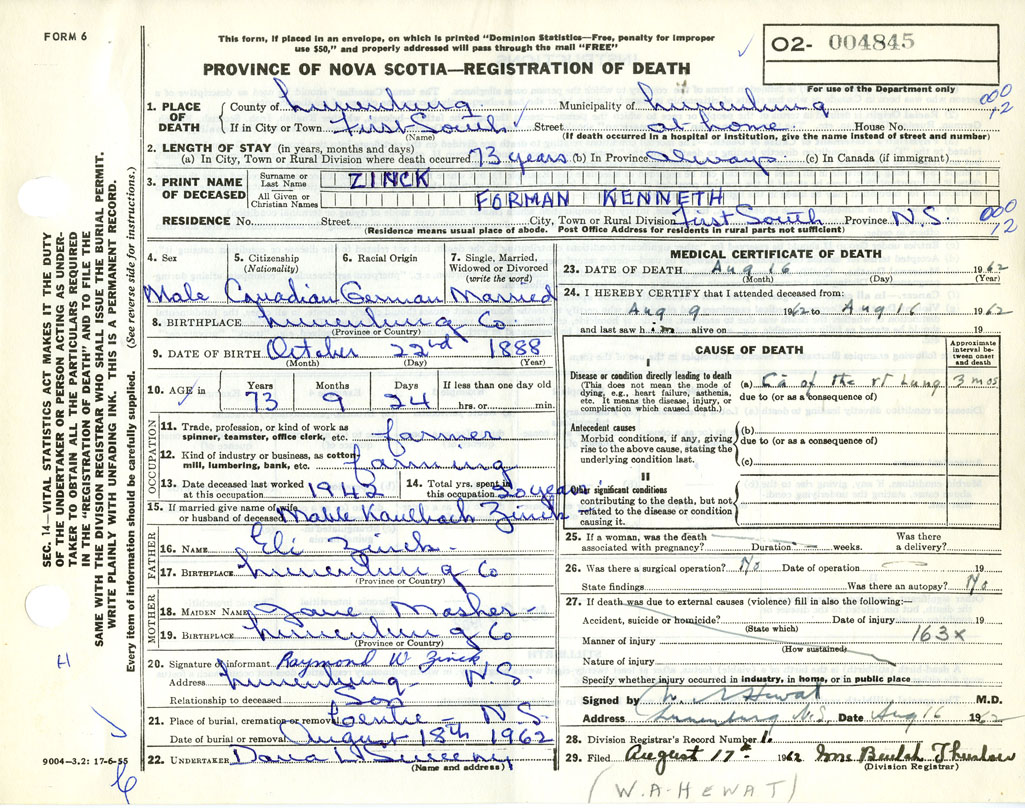 FORM 6
This form, if placed in an envelope, on which is printed "Dominion Statistics—Free, penalty for improper
use $50," and properly addressed will pass through the mail "FREE"
O2- 004845
PROVINCE OF NOVA SCOTIA—REGISTRATION OF DEATH
For use of the Department only
1. PLACE OF DEATH County of Lunenburg Municipality of Lunenburg 000
If in City or Town First South Street at home House No. 72
(Name) (If death occurred in a hospital or institution, give the name instead of street and number)
2. LENGTH OF STAY (in years, months and days)
(a) In City, Town or Rural Division where death occurred 73 years (b) In Province Always (c) In Canada (if immigrant)
3. PRINT NAME OF DECEASED Surname or Last Name ZINCK
All Given or Christian Names FORMAN KENNETH
RESIDENCE No. Street City, Town or Rural Division First South Province N.S. 000
(Residence means usual place of abode. Post Office Address for residents in rural parts not sufficient) 72
4. Sex 5. Citizenship (Nationality) 6. Racial Origin 7. Single, Married, Widowed or Divorced (write the word)
Male Canadian German Married
8. BIRTHPLACE Lunenburg Co
(Province or Country)
9. DATE OF BIRTH October 22nd 1888
(Month) (Day) (Year)
10. AGE in Years Months Days If less than one day old
73 9 24 hrs. or min.
OCCUPATION
11. Trade, profession, or kind of work as
spinner, teamster, office clerk, etc. farmer
12. Kind of industry or business, as cotton
mill, lumbering, bank, etc. farming
13. Date deceased last worked at this occupation 1942 14. Total yrs. spent in this occupation 20 years
15. If married give name of wife
or husband of deceased Mable Kaulbach Zinck
FATHER
16. NAME Eli Zinck
17. BIRTHPLACE Lunenburg Co
(Province or Country)
MOTHER
18. MAIDEN NAME Jane Mosher
19. BIRTHPLACE Lunenburg Co
(Province or Country)
20. Signature of informant Raymond W. Zinck
Address Lunenburg N.S.
Relationship to deceased Son
21. Place of burial, cremation or removal N.S.
Date of burial or removal August 18th 1962
22. UNDERTAKER Dana L. Sweeny
(Name and address)
MEDICAL CERTIFICATE OF DEATH
23. DATE OF DEATH Aug 16 1962
(Month) (Day) (Year)
24. I HEREBY CERTIFY that I attended deceased from:
Aug 9 1962 to Aug 16 1962
and last saw him alive on 19
CAUSE OF DEATH
Approximate interval between onset and death
I
Disease or condition directly leading to death (a) Ca of the rt Lung 3 mos
(This does not mean the mode of due to (or as a consequence of)
dying, e.g., heart failure, asthenia,
etc. It means the disease, injury, or
complication which caused death.)
Antecedent causes (b)
Morbid conditions, if any, giving due to (or as a consequence of)
rise to the above cause, stating the
underlying condition last. (c)
II
Other significant conditions
contributing to the death, but not
related to the disease or condition
causing it.
25. If a woman, was the death Was there
associated with pregnancy? Duration weeks. a delivery?
26. Was there a surgical operation? No Date of operation 19
State findings Was there an autopsy? No
27. If death was due to external causes (violence) fill in also the following:—
Accident, suicide or homicide? Date of injury 19
(State which) 163x
Manner of injury
(How sustained)
Nature of injury
Specify whether injury occurred in industry, in home, or in public place
Signed by W. A Hewat M.D.
Address Lunenburg N.S. Date Aug 16 1962
28. Division Registrar's Record Number 1.
29. Filed August 17th 1962 Mrs Beulah
(Division Registrar)
(W.A-HEWAT)
SEC. 14—VITAL STATISTICS ACT MAKES IT THE DUTY
OF THE UNDERTAKER OR PERSON ACTING AS UNDER-
TAKER TO OBTAIN ALL THE PARTICULARS REQUIRED
IN THE "REGISTRATION OF DEATH" AND TO FILE THE
SAME WITH THE DIVISION REGISTRAR WHO SHALL ISSUE THE BURIAL PERMIT.
WRITE PLAINLY WITH UNFADING INK. THIS IS A PERMANENT RECORD.
Every item of information should be carefully supplied. (See reverse side for instructions.)
H
9004-3.2: 17-6-55